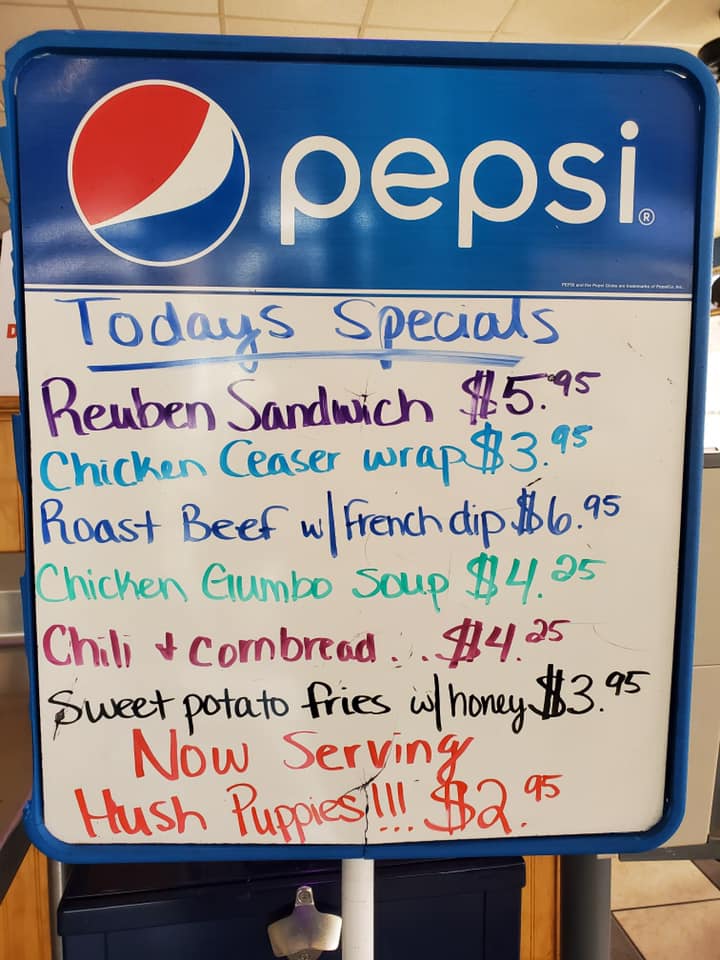 pepsi®
PEPSI and the Pepsi Globe are trademarks of PepsiCo, Inc.
Todays Specials
Reuben Sandwich $5.95
Chicken Ceaser wrap $3.95
Roast Beef w/ french dip $6.95
Chicken Gumbo Soup $4.25
Chili & cornbread... $4.25
Sweet potato fries w/ honey $3.95
Now Serving
Hush Puppies!!! $2.95